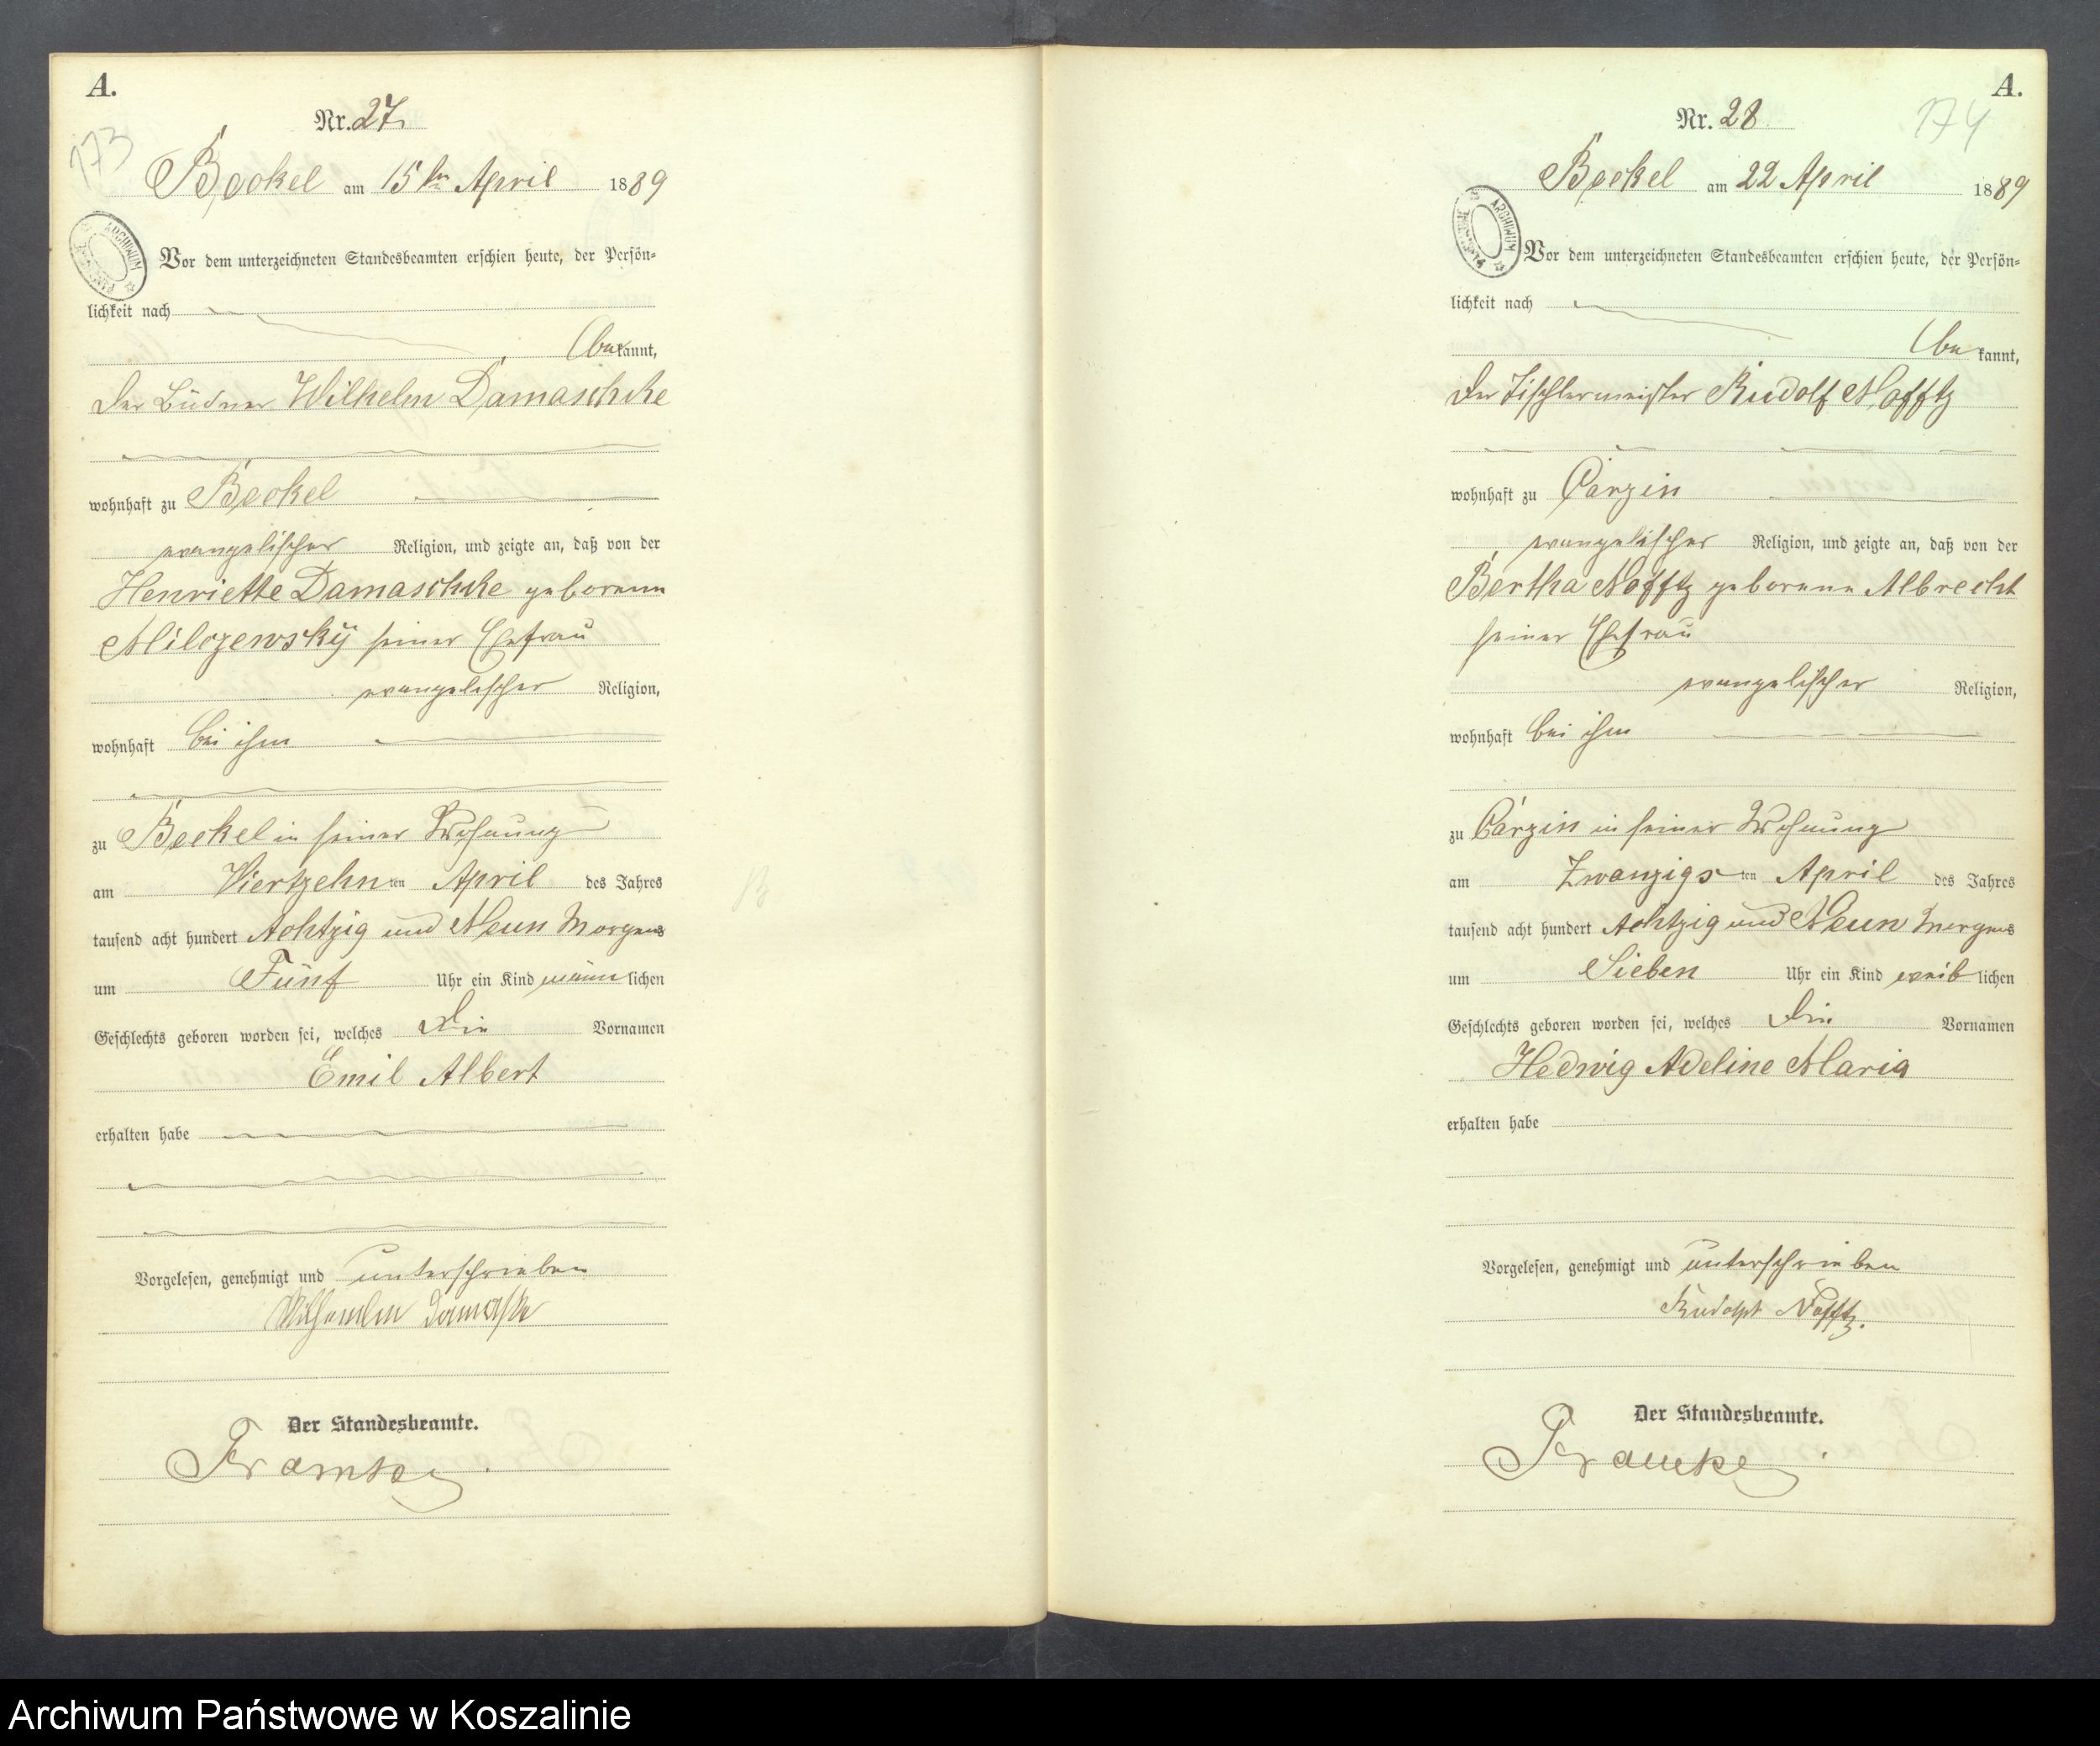 A.
Nr. 27.
173
Beckel am 15ten April 1889
Vor dem unterzeichneten Standesbeamten erschien heute, der Persön-
lichkeit nach
be kannt,
der Büdner Wilhelm Damaschke
wohnhaft zu Beckel
evangelischer Religion, und zeigte an, daß von der
Henriette Damaschke geborenen
Milczewsky seiner Ehefrau
evangelischer Religion,
wohnhaft bei ihm
zu Beckel in seiner Wohnung
am Vierzehn ten April des Jahres
tausend acht hundert Achtzig und Neun Morgens
um Fünf Uhr ein Kind männ lichen
Geschlechts geboren worden sei, welches die Vornamen
Emil Albert
erhalten habe
Vorgelesen, genehmigt und unterschrieben
Wilhemlm Damaske
Der Standesbeamte.
A.
Nr. 28
174
Beckel am 22 April 1889
ARCHIWUM
Vor dem unterzeichneten Standesbeamten erschien heute, der Persön-
lichkeit nach
be kannt,
der Tischlermeister Rudolf Nofftz
wohnhaft zu Carzin
evangelischer Religion, und zeigte an, daß von der
Bertha Nofftz geborene Albrecht
seiner Ehefrau
evangelischer Religion,
wohnhaft bei ihm
zu Carzin in seiner Wohnung
am Zwanzigs ten April des Jahres
tausend acht hundert Achtzig und Neun Morgens
um Sieben Uhr ein Kind weib lichen
Geschlechts geboren worden sei, welches die Vornamen
Hedwig Adeline Maria
erhalten habe
Vorgelesen, genehmigt und unterschrieben
Rudolph Nofftz.
Der Standesbeamte.
Archiwum Państwowe w Koszalinie